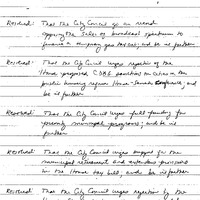 Resolved: That the City Council go on record
opposing the sales of broadcast spectrum to
finance a
be it further
Resolved: That the City Council urges rejection of the
House proposed CDBG
public housing reform House-Senate Conference; and
be it further
Resolved: That the City Council urges full funding for
municipal programs; and be it
further
Resolved: That the City Council urges support for the
municipal retirement and provisions
in the House tax bill, and be it further
Resolved: That the City Council urges rejection by the